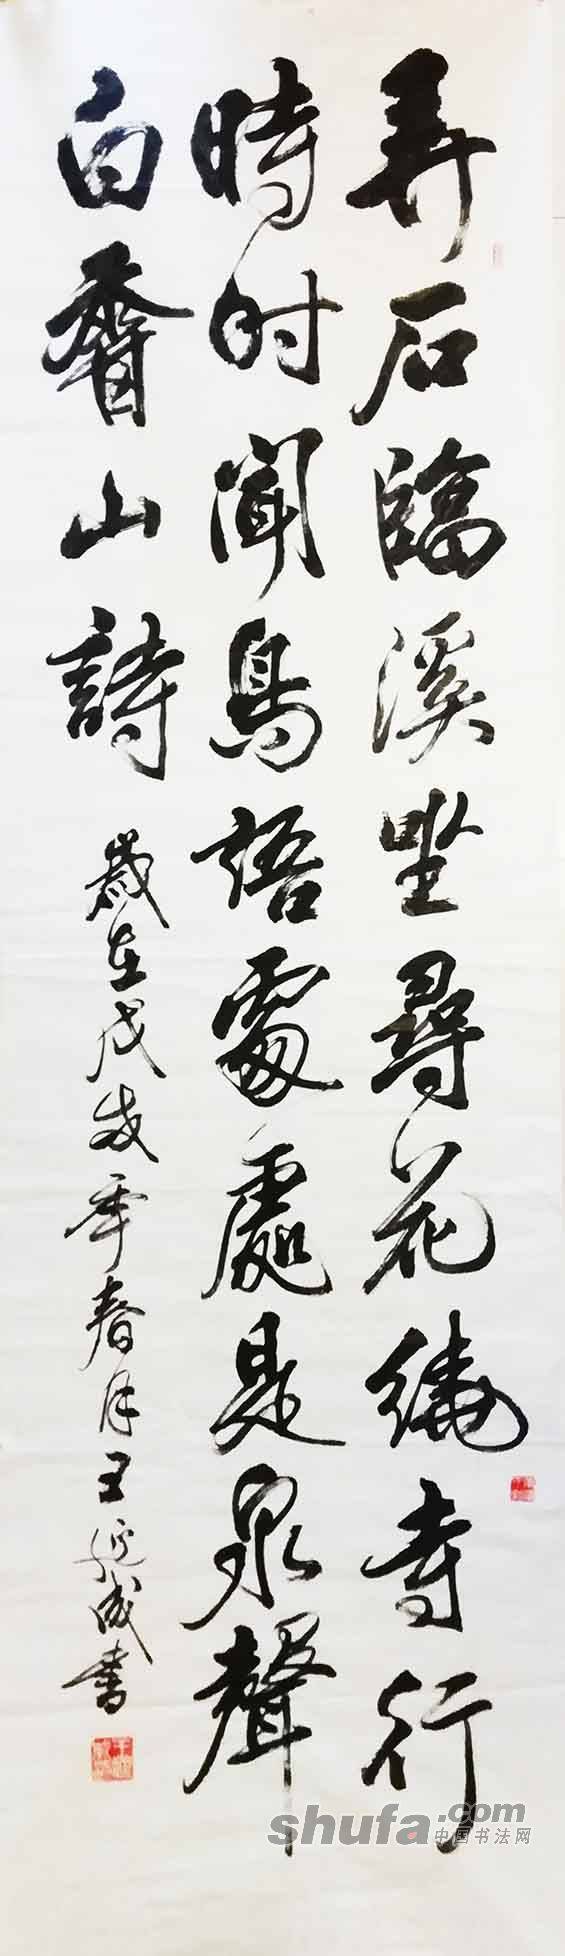 弄石臨溪坐尋花繞寺行
時时聞鳥語處處是泉聲
白香山詩
歲在戊戌季春月王延成書
shufa.com
中国书法网